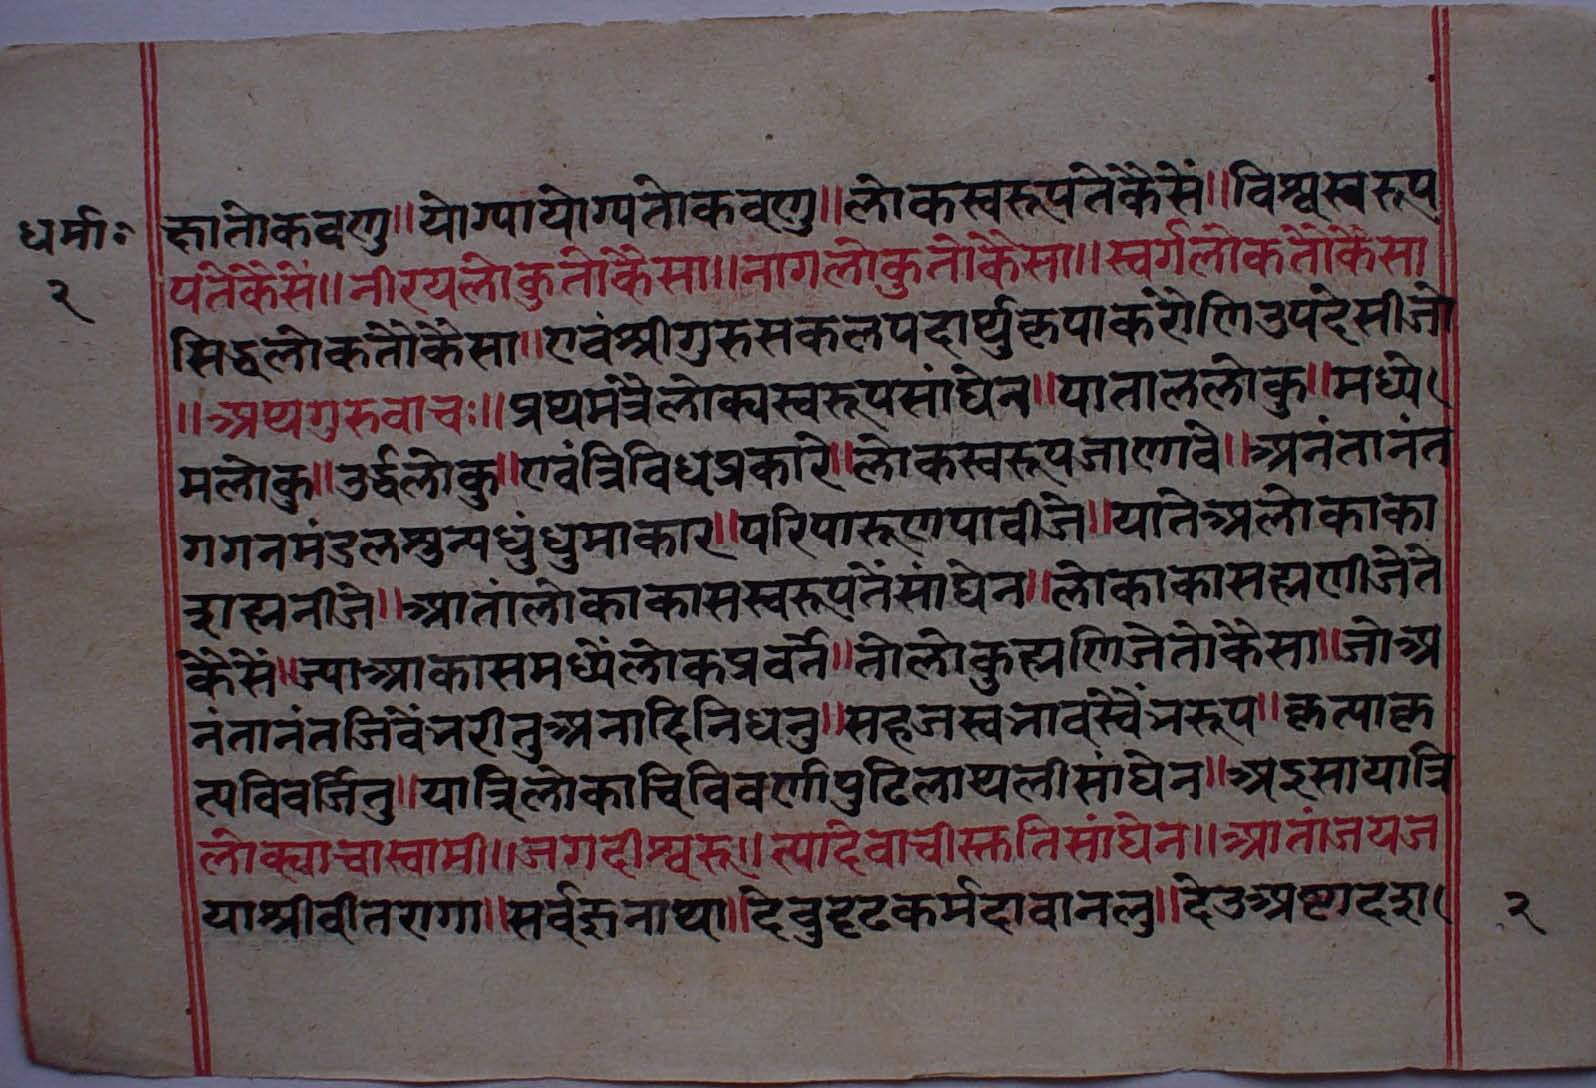 धर्माः
२
क्तातोकवणु॥योग्यायोग्यतोकवणु॥लोकस्वरूपतेकैसें॥विश्वस्वरूप
पतेकैसें॥नीरयलोकुतोकैसा॥नागलोकुतोकैसा॥स्वर्गलोकतोकैसा
सिद्धलोकतोकैसा॥एवंश्रीगुरुसकलपदार्थुकृपाकरोणिउपदेसीजो
॥अथगुरुवाचः॥प्रथमंत्रैलोक्यस्वरूपसांघेन॥पाताललोकु॥मध्ये
मलोकु॥उर्द्धलोकु॥एवंत्रिविधप्रकारे॥लोकस्वरूपजाणावे॥अनंतानंत
गगनमंडलशुन्यधुंधुमाकार॥परिपारूणपावीजे॥यातेअलोकाका
शह्मनीजे॥आतांलोकाकासस्वरूपतेंसांघेन॥लोकाकासह्मणीजेते
कैसें॥ज्याआकासमध्यें लोकप्रवर्ते॥तोलोकुह्मणिजेतोकैसा॥जोअ
नंतानंतजिवेंभरीतुअनादिनिधनु॥सहजस्वभावस्वैंभरूप॥कृत्याकृ
त्यविवर्जितु॥यात्रिलोकाचिविवर्णापुटिलाथलीसांघेन॥अइसायात्रि
लोक्याचास्वामी॥जगदीश्वरू॥त्यादेवाचीस्क्ततिसांघेन॥आतांजयज
याश्रीवीतरागा॥सर्वज्ञनाथा॥देवुदृढकर्मदावानलु॥देउअष्टादशा
२